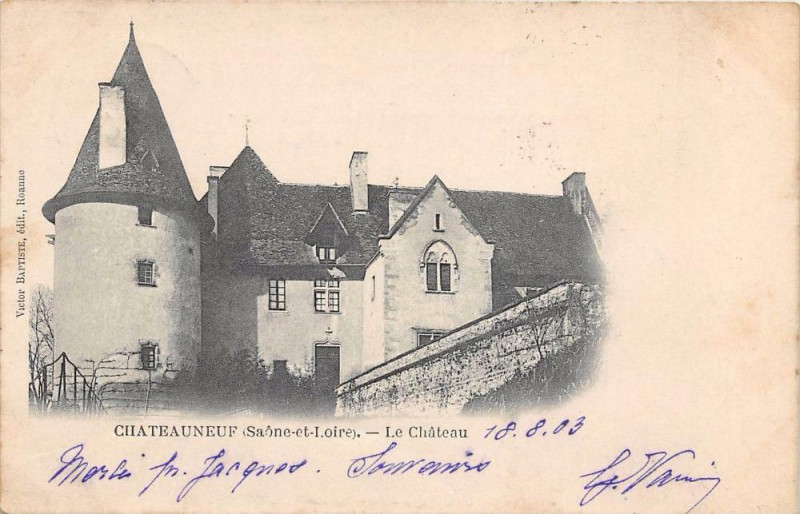 Victor BAPTISTE, édit., Roanne
CHATEAUNEUF (Saône-et-Loire). — Le Château 18.8.03
Merci pr. Jacques. Souvenirs